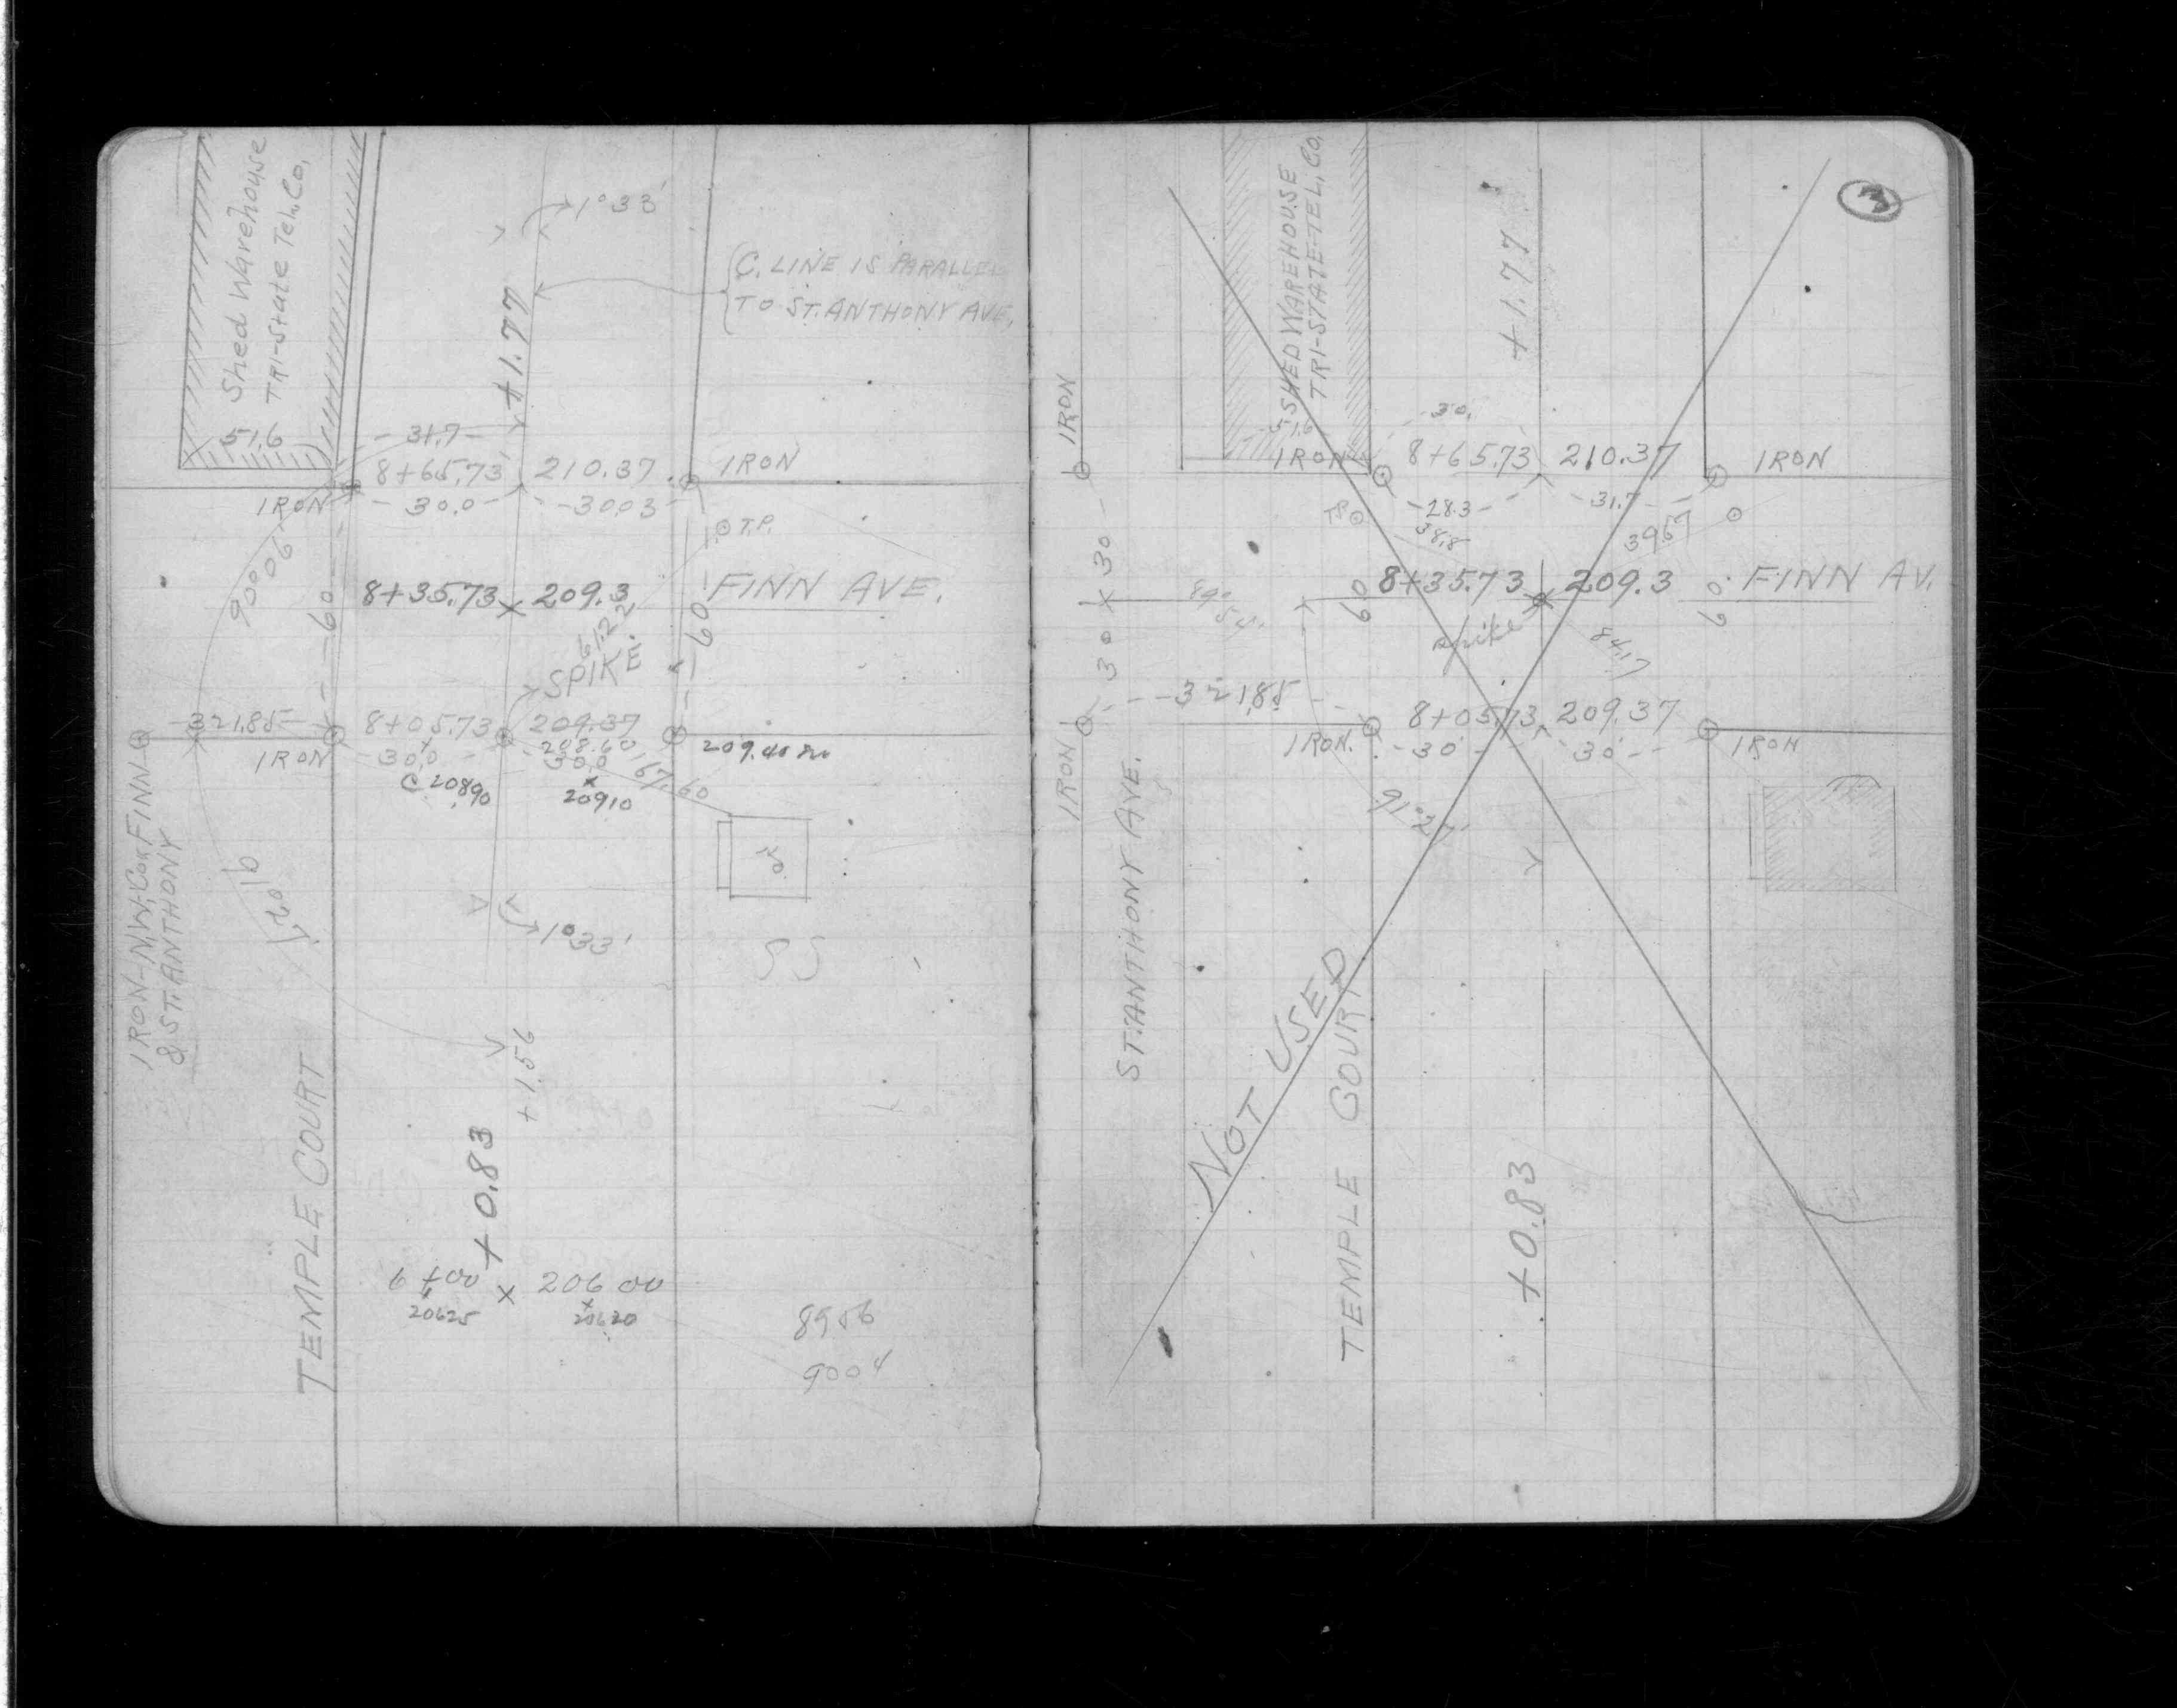 Shed Warehouse
TRI-State Tel. Co.
51.6
1°33'
C. LINE IS PARALLEL
TO ST. ANTHONY AVE.
+1.77
-31.7-
8+65.73 210.37
IRON
IRON
-30.0- -30.03-
T.P.
90°06'
60
8+35.73 x 209.3
60
FINN AVE.
61.22
SPIKE.
-321.85-
8+05.73 209.37
208.60
IRON
-30.0- 30.0
67.60
209.40
C 20890
x
20910
IRON-N.W. COR. FINN
& ST. ANTHONY
1°33'
+1.56
TEMPLE COURT
+0.83
6+00 x 206 00
20625 20620
8956
9004
3
IRON
SHED WAREHOUSE
TRI-STATE TEL. CO.
51.6
+1.77
30.
IRON
8+65.73 210.37
IRON
-28.3- -31.7-
TP
38.8
39.67
30 x 30
89°
54'
60
8+35.73 209.3
60
FINN AV.
spike
84.17
-321.85
8+05.73 209.37
IRON.
-30- 30-
IRON
IRON
91°27'
ST. ANTHONY AVE.
NOT USED
TEMPLE COURT
+0.83